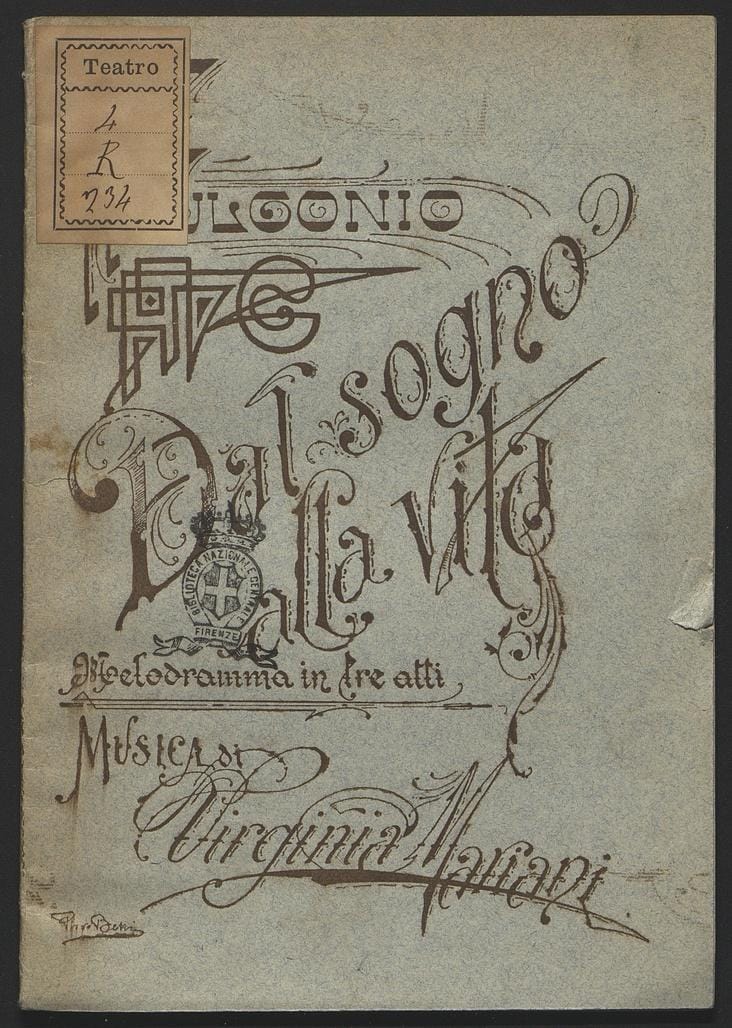 Teatro
4
R
234
ULGONIO
Dal sogno
alla vita
BIBLIOTECA NAZIONALE CENTRALE
FIRENZE
Melodramma in tre atti
MUSICA di
Virginia Mariani